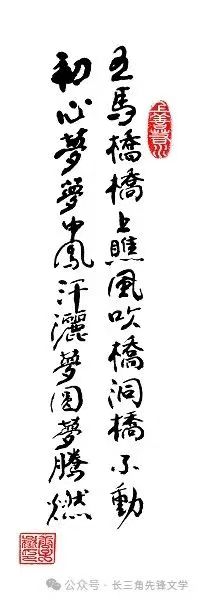 五馬橋橋上瞧風吹橋洞橋不動
初心夢夢中鳳汗灑夢圓夢騰燃
上善若水
公众号·长三角先锋文学